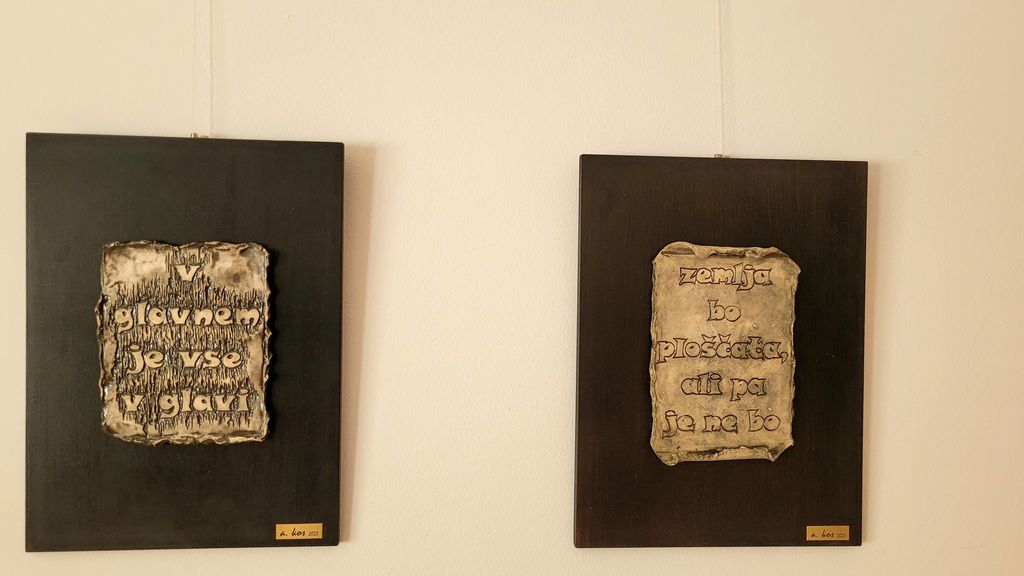 v
glavnem
je vse
v glavi
a. kos
zemlja
bo
ploščata,
ali pa
je ne bo
a. kos